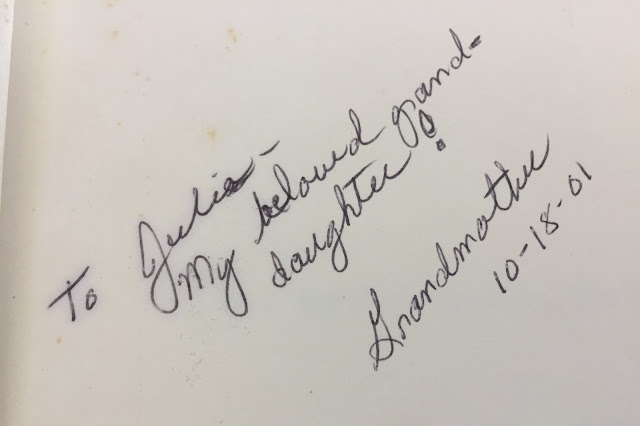 To Julia-
My beloved grand-
daughter!
Grandmother
10-18-01